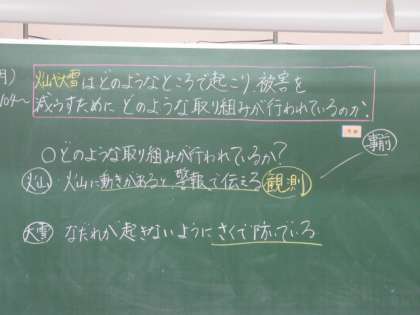 月)
P104〜
火山や大雪はどのようなところで起こり、被害を
減らすために どのような取り組みが行われているのか。
○どのような取り組みが行われているか?
事前
火山 火山に動きがあると 警報で伝える 観測
大雪 なだれが起きないように さくで防いでいる